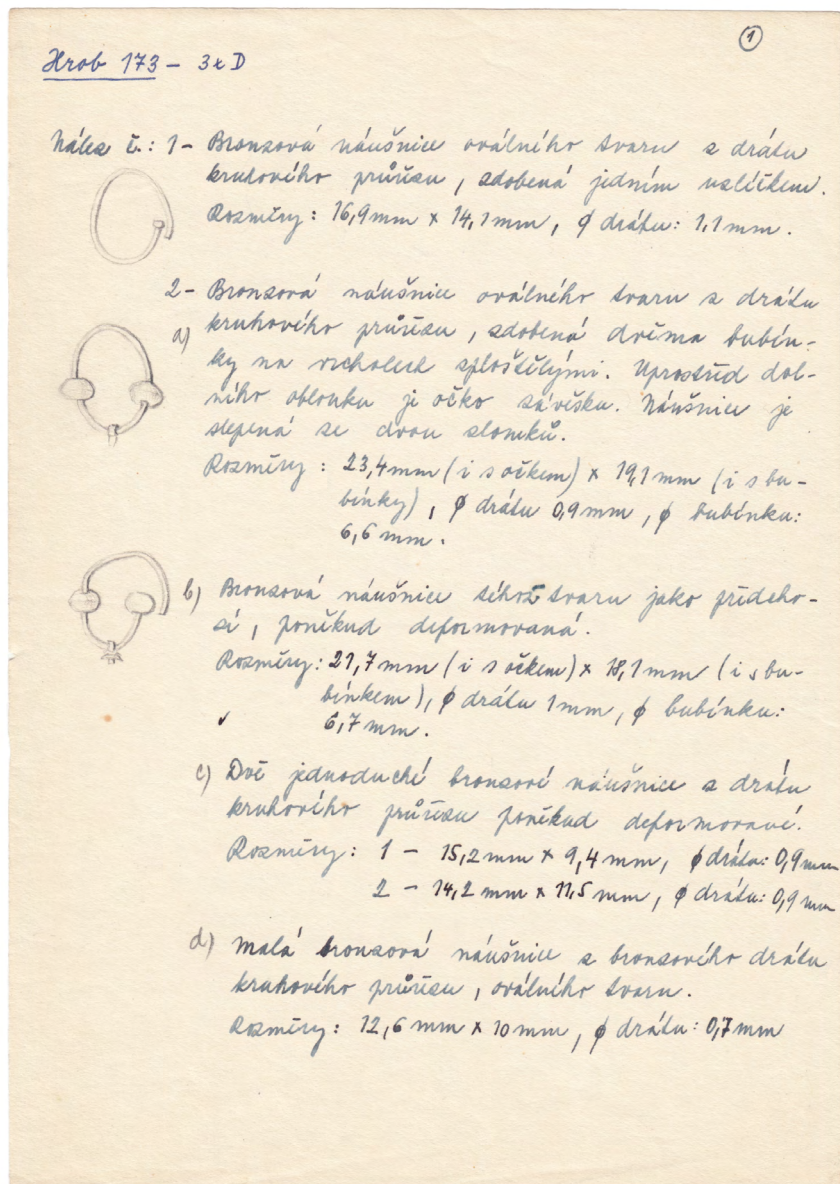 1
Hrob 173 - 3xD
Nález č.: 1- Bronzová náušnice oválného tvaru z drátu
kruhového průřezu, zdobená jedním uzlíčkem.
Rozměry: 16,9mm x 14,1mm, ϕ drátu: 1,1mm.
2- Bronzová náušnice oválného tvaru z drátu
a) kruhového průřezu, zdobená dvěma bubín-
ky na vrcholech sploštělými. Uprostřed dol-
ního oblouku je očko závěsku. Náušnice je
slepená ze dvou zlomků.
Rozměry: 23,4mm (i s očkem) x 19,1mm (i s bu-
bínky), ϕ drátu 0,9mm, ϕ bubínku:
6,6mm.
b) Bronzová náušnice téhož tvaru jako předcho-
zí, poněkud deformovaná.
Rozměry: 21,7mm (i s očkem) x 18,1mm (i s bu-
bínkem), ϕ drátu 1mm, ϕ bubínku:
6,7mm.
c) Dvě jednoduché bronzové náušnice z drátu
kruhového průřezu poněkud deformované.
Rozměry: 1 - 15,2mm x 9,4mm, ϕ drátu: 0,9mm
2 - 14,2mm x 11,5mm, ϕ drátu: 0,9mm
d) Malá bronzová náušnice z bronzového drátu
kruhového průřezu, oválného tvaru.
Rozměry: 12,6mm x 10mm, ϕ drátu: 0,7mm